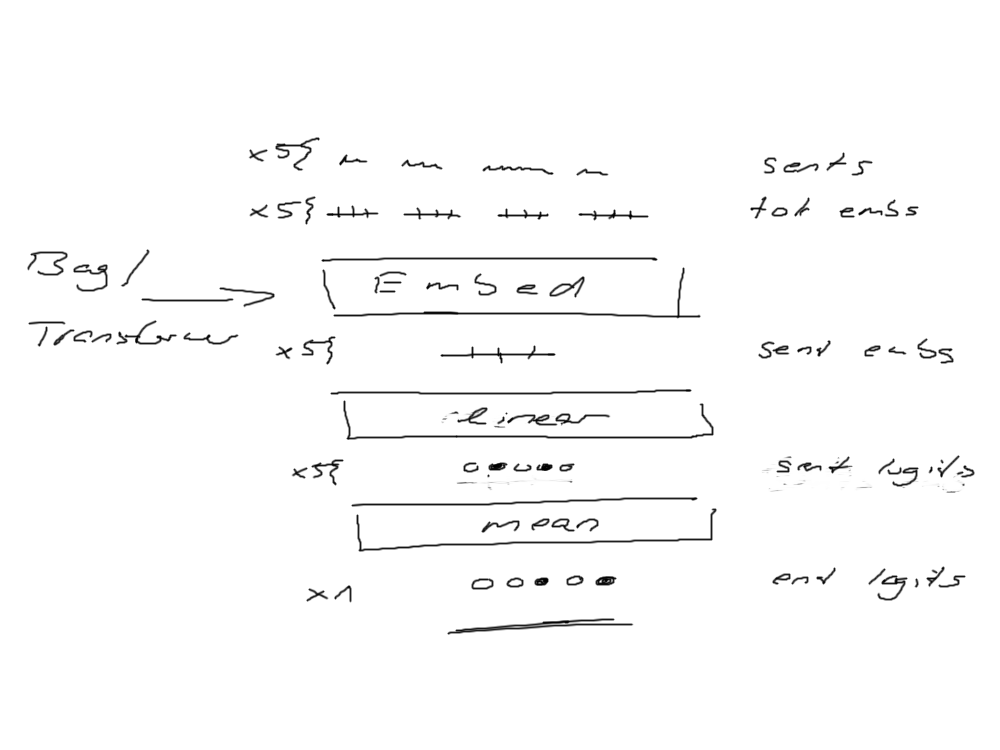 x5{ sents
x5{ tok embs
Bag /
Embed
Transformer
x5{ send embs
linear
x5{ sent logits
mean
x1 end logits